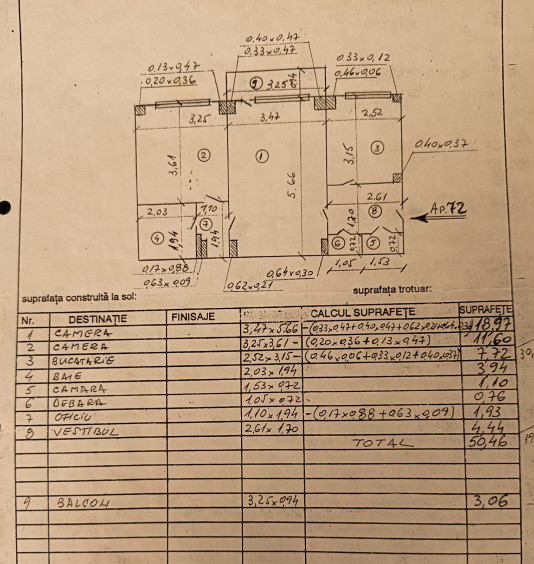 0,40 x 0,47
0,33 x 0,47
0,13 x 0,47
0,20 x 0,36
0,33 x 0,12
0,46 x 0,06
9
3.25
0,94
3,25
3,47
2,52
0,40 x 0,37
3,61
2
1
5.66
3,15
3
2.03
1,10
7
2.61
8
Ap.72
4
1,94
1,94
1,70
6
0,72
5
0,72
1,05
1,53
0,17 x 0,88
0,63 x 0,09
0,62 x 0,21
0,64 x 0,30
suprafața construită la sol:
suprafața trotuar:
Nr. DESTINAȚIE FINISAJE CALCUL SUPRAFEȚE SUPRAFEȚE
1 CAMERA 3,47 x 5.66 -(0,33.0,47+0,40.0,47+0,62.0,21+0,64.0,30) 18,97
2 CAMERA 3,25 x 3,61 - (0,20 x 0,36 + 0,13 x 0,47) 11,60
3 BUCATARIE 2,52 x 3,15 - (0,46.0,06 + 0,33 x 0,12 + 0,40.0,37) 7,72
4 BAIE 2,03 x 1,94 3,94
5 CAMARA 1,53 x 0,72 1,10
6 DEBARA 1,05 x 0,72 0,76
7 OFICIU 1,10 x 1,94 - (0,17 x 0,88 + 0,63 x 0,09) 1,93
8 VESTIBUL 2,61 x 1,70 4,44
TOTAL 50,46
9 BALCON 3,25 x 0,94 3,06